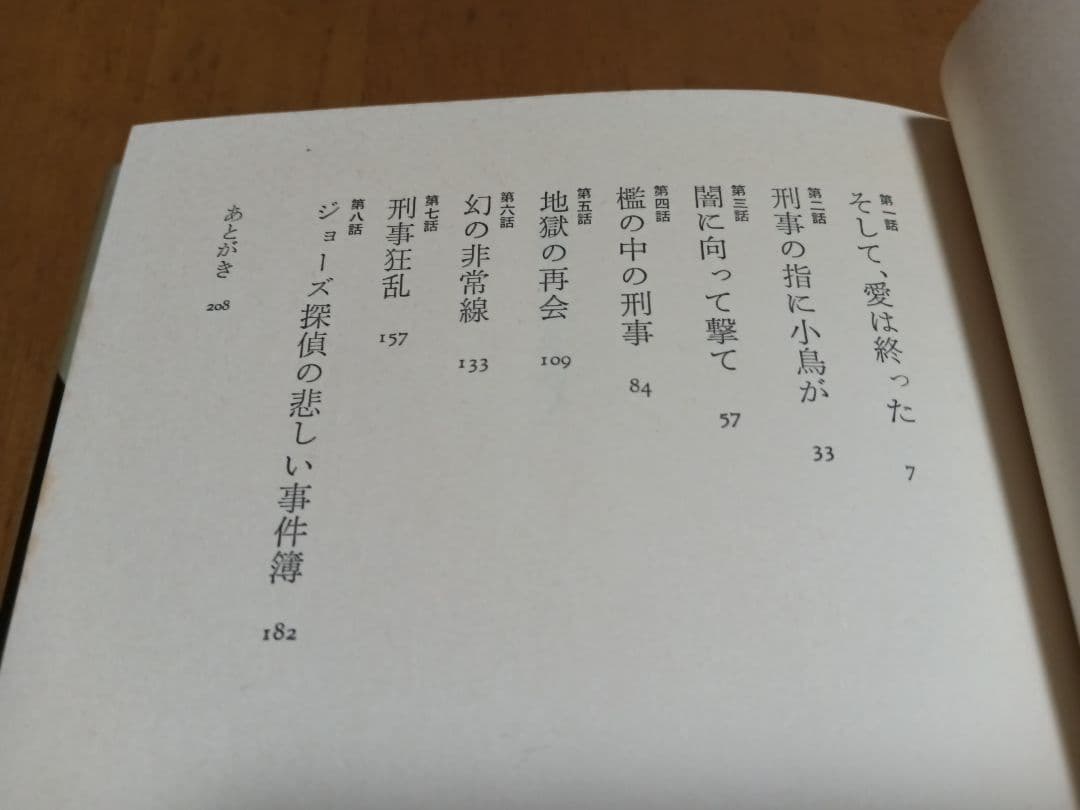 第一話
そして、愛は終った 7
第二話
刑事の指に小鳥が 33
第三話
闇に向って撃て 57
第四話
檻の中の刑事 84
第五話
地獄の再会 109
第六話
幻の非常線 133
第七話
刑事狂乱 157
第八話
ジョーズ探偵の悲しい事件簿 182
あとがき 208